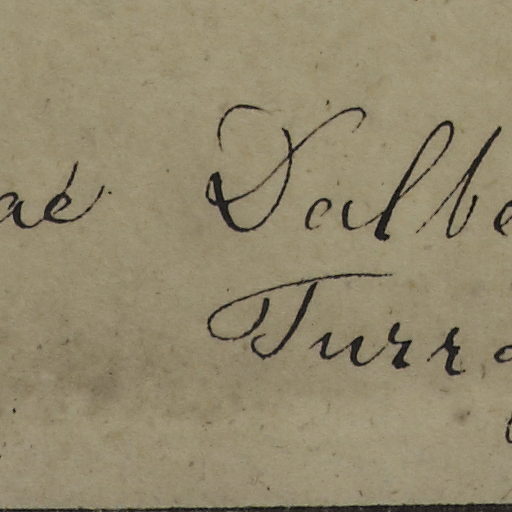 aé Dalbe
Turra